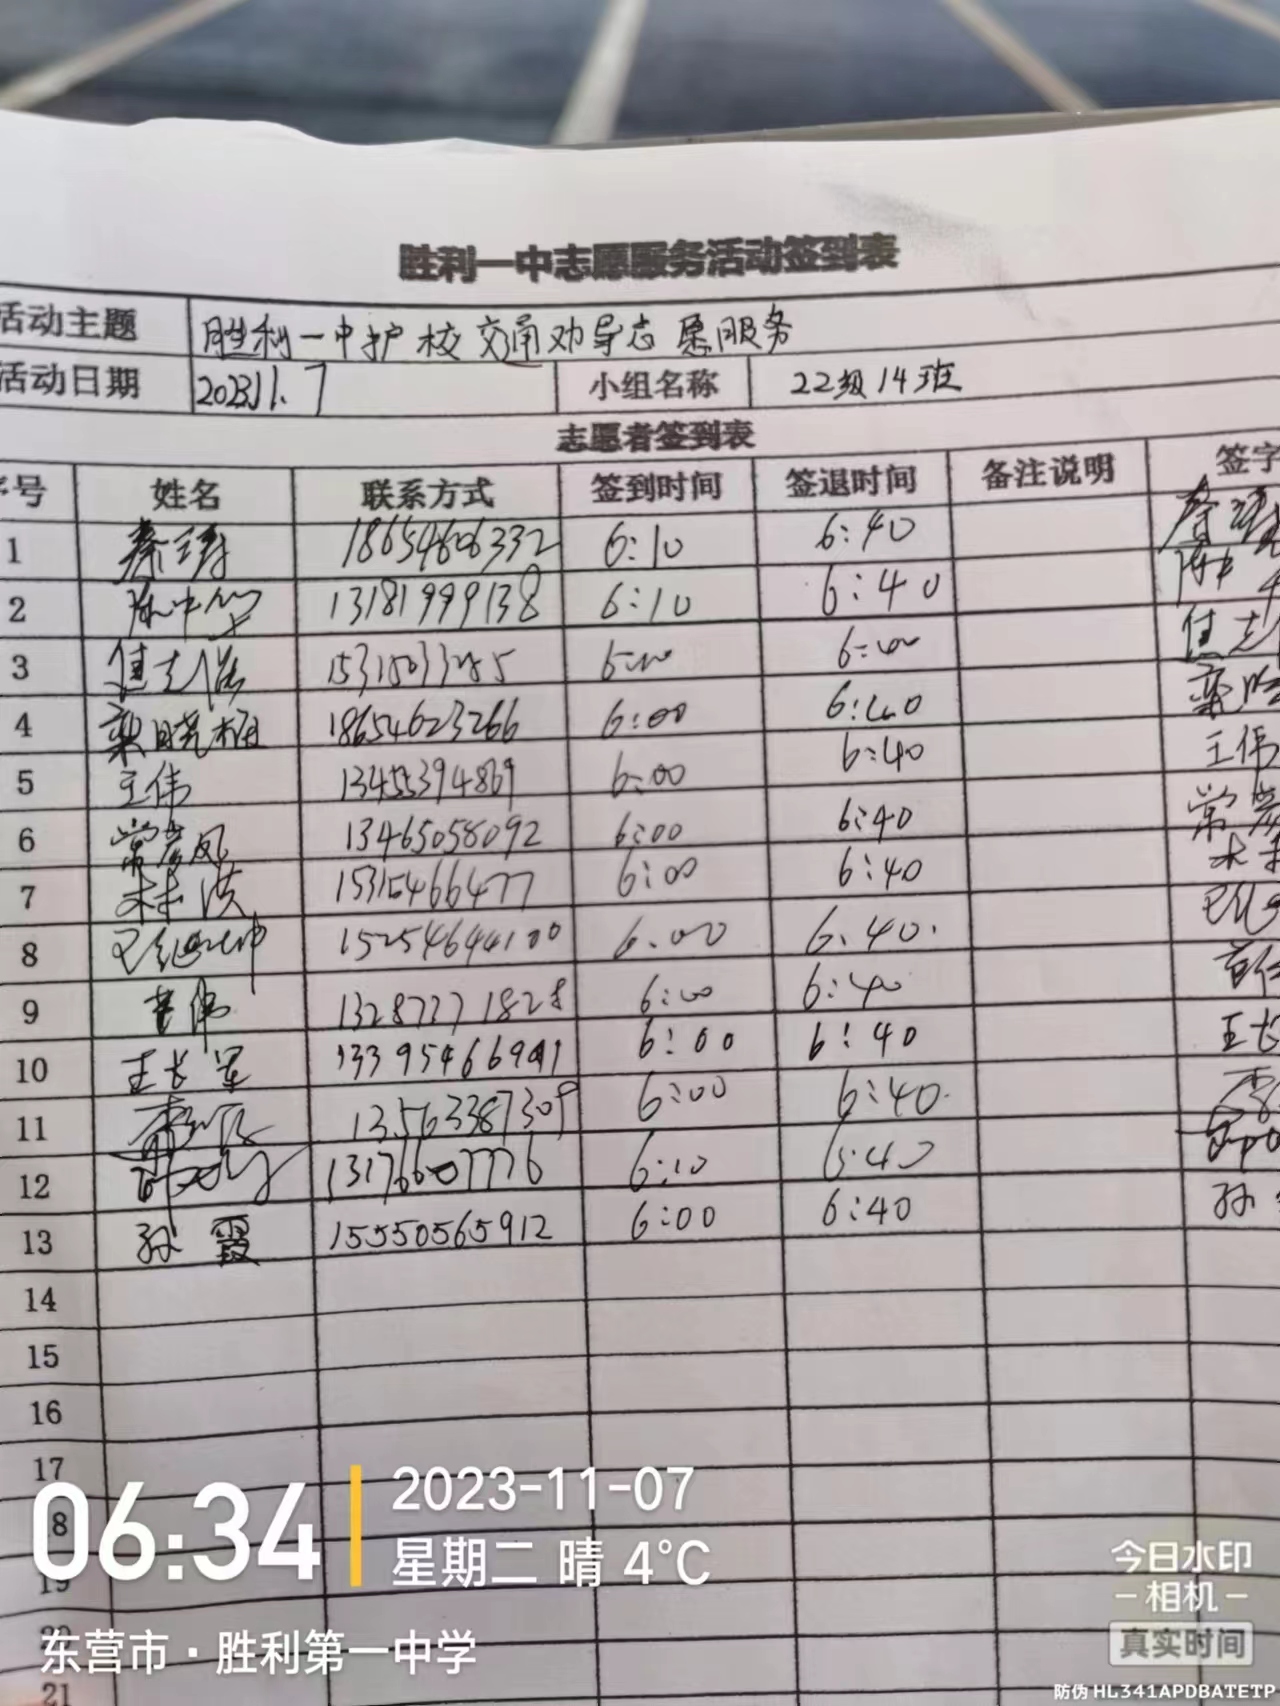 胜利一中志愿服务活动签到表
活动主题 胜利一中护校交通劝导志愿服务
活动日期 2023.11.7 小组名称 22级14班
志愿者签到表
序号 姓名 联系方式 签到时间 签退时间 备注说明 签字
1 秦 18654606332 6:10 6:40 秦
2 13181999138 6:10 6:40
3 6:00 6:00
4 栾晓 18654623266 6:00 6:40 栾晓
5 王伟 13455394869 6:00 6:40 王伟
6 常彦凤 13465058092 6:00 6:40 常彦
7 林洪 15315466477 6:00 6:40 林
8 15254644100 6:00 6:40.
9 董伟 13287771828 6:00 6:40
10 王长军 13395466941 6:00 6:40 王长
11 13563387309 6:00 6:40.
12 13176607776 6:10 6:40
13 孙霞 15550565912 6:00 6:40 孙
14
15
16
17
8
19
20
21
06:34
2023-11-07
星期二 晴 4°C
东营市·胜利第一中学
今日水印
-相机-
真实时间
防伪 HL341APDBATETP